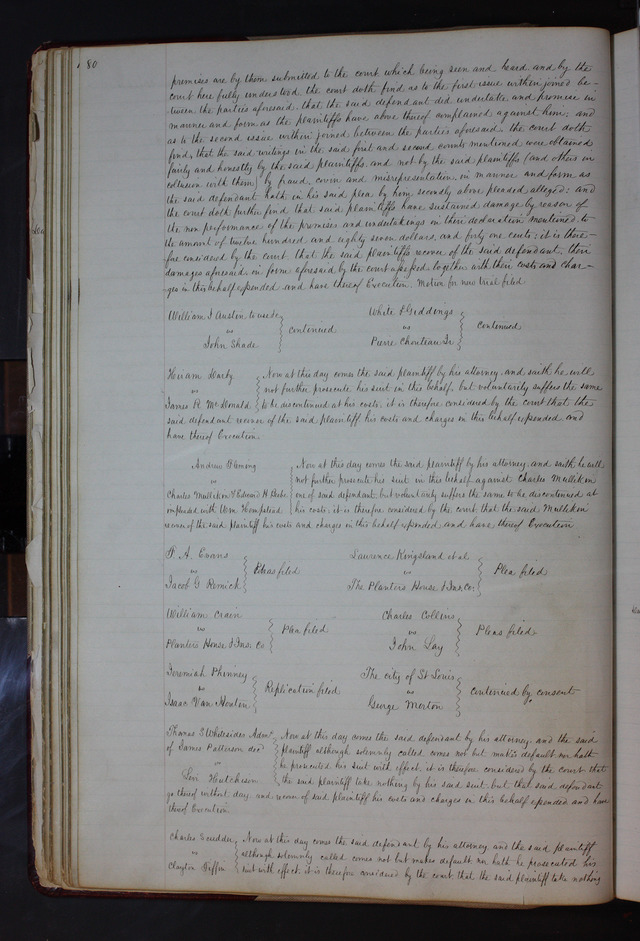 80
premises are by them submitted to the court which being seen and heard and by the
court here fully understood the court doth find as to the first issue within joined be-
tween the parties aforesaid that the said defendant did undertake and promise in
manner and form as the plaintiffs have above thereof complained against him; and
as to the second issue within joined between the parties aforesaid the court doth
find, that the said writings in the said first and second counts mentioned were obtained
fairly and honestly by the said plaintiffs and not by the said plaintiffs (and others in
collusion with them) by fraud, covin and misrepresentation in manner and form as
the said defendant hath in his said plea by him secondly above pleaded alleged: and
the court doth further find that said plaintiffs have sustained damage by reason of
the non performance of the promises and undertakings in their declaration mentioned to
the amount of twelve hundred and eighty seven dollars, and forty one cents; it is there-
fore considered by the court that the said plaintiffs recover of the said defendant their
damages aforesaid in form aforesaid by the court assessed together with their costs and char-
ges in this behalf expended and have thereof Execution. Motion for new trial filed
William J Austen to use &c
vs
John Shade
continued
White & Giddings
vs
Pierre Chouteau Jr
continued
Hiram
vs
James R McDonald
Now at this day comes the said plaintiff by his attorney and saith he will
not further prosecute his suit in this behalf, but voluntarily suffers the same
to be discontinued at his costs; it is therefore considered by the court that the
said defendant recover of the said plaintiff his costs and charges in this behalf expended and
have thereof Execution.
Andrew Fleming
vs
Charles Mullikin & Edward H
impleaded with Wm Hempstead
Now at this day comes the said plaintiff by his attorney and saith he will
not further prosecute his suit in this behalf against Charles Mullikin
one of said defendant but voluntarily suffers the same to be discontinued at
his costs; it is therefore considered by the court that the said Mullikin
recover of the said plaintiff his costs and charges in this behalf expended and have thereof Execution
A Evans
vs
Jacob G Remick
Pleas filed
Laurence Kingsland et al
vs
The Planters House & Ins. Co.
Plea filed
William Crain
vs
Planters House & Ins. Co
Plea filed
Charles Collins
vs
John Lay
Pleas filed
Jeremiah Phinney
vs
Isaac Van Houten
Replication filed
The city of St Louis
vs
George Morton
continued by consent
Thomas S Whitesides Admr
of James Patterson decd
vs
Levi Hutcheson
Now at this day comes the said defendant by his attorney: and the said
plaintiff although solemnly called comes not but makes default nor hath
he prosecuted his suit with effect. it is therefore considered by the court that
the said plaintiff take nothing by his said suit. but that said defendant
go thereof without day and recover of said plaintiff his costs and charges in this behalf expended and have
thereof Execution
Charles Scudder
vs
Clayton Tiffin
Now at this day comes the said defendant by his attorney and the said plaintiff
although solemnly called comes not but makes default nor hath he prosecuted his
suit with effect. it is therefore considered by the court that the said plaintiff take nothing